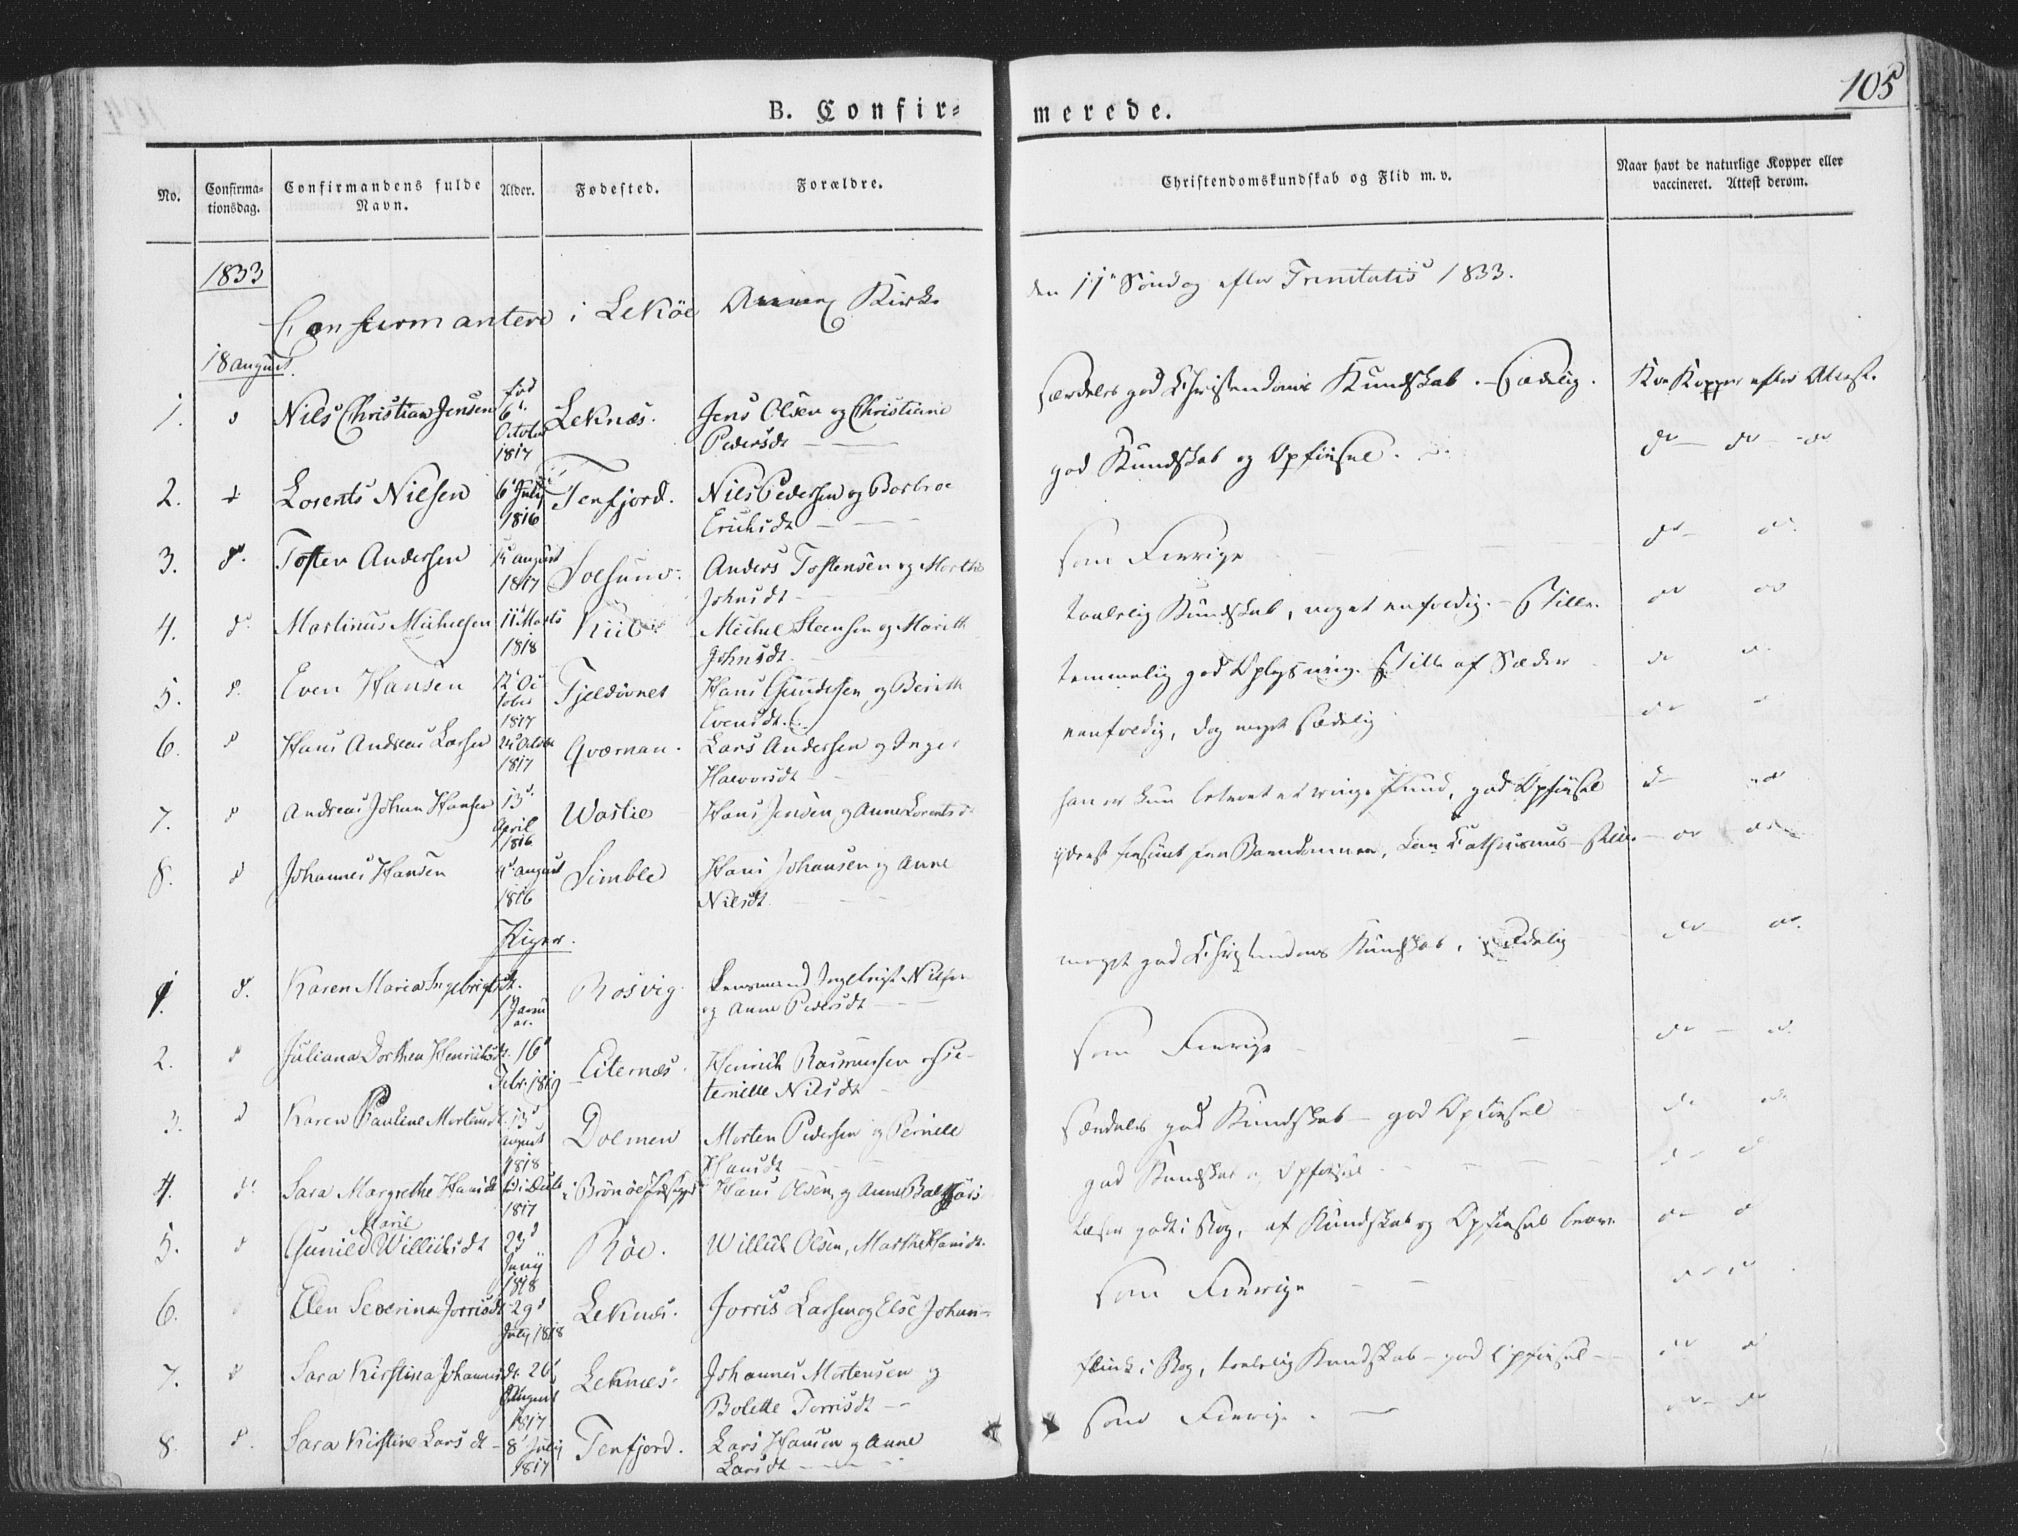 105
B. Confir= merede.
No. Confirma= tionsdag. Confirmandens fulde Navn. Alder. Fødested. Forældre. Christendomskundskab og Flid m. v. Naar havt de naturlige Kopper eller vaccineret. Attest derom.
1833
Confirmantere i Leköe Annex Kirke den 11te Söndag efter Trinitatis 1833.
18 august.
1. d Nils Christian Jensen fød 6te October 1817 Leknæs. Jens Olsen og Christiane Pedersdt særdeles god Christendoms Kundskab. Sædelig. Koekopper efter Attest.
2. d Lorents Nielsen 6 July 1816 Tenfjord. Nils Pedersen og Barbroe Erichsdt god Kundskab og Opførsel. do do do
3. do Tosten Andersen 15 august 1817 Solsund Anders Tostensen og Marthe Johnsdt som Forrige do do
4. do Martinus Michelsen 11 Marts 1818 Michel Steensen og Marith Johnsdt. taalelig Kundskab, noget eenfoldig. Stille. do do
5. d. Even Hansen 12 October 1817 Hans Gundersen og Berith Evensdt. temmelig god Oplysning. Stille af Sæder do do
6. d Hans Andreas Larsen 24 October 1817 Qværnan. Lars Andersen og Inger Halvorsdt eenfoldig, dog meget sædelig do
7. d Andreas Johan Hansen 13de April 1816 Hans Jensen og Anne Lorentsd. han er kun betroet et ringe Pund, god Opførsel do do
8. d Johannes Hansen august 1816 Simble Hans Johansen og Anne Nilsdt yderst forsømt fra Barndommen, Stille do do
Piger.
1. d. Karen Maria Ingebrigtsdt. 1 Januar. Rosvig. Lensmand Ingebrigt Nilsen og Anne Pedersdt meget god Christendoms Kundskab, sædelig do do
2. d Juliana Dorthea Henrichsdt. 16 Febr. 1819 Eiternæs. Henrich Rasmussen og Peternille Nilsdt som Forrige do do
3. d Karen Pauline Mortensdt 13 august 1818 Dolmen Morten Pedersen og Pernille Hansdt særdeles god Kundskab - god Opførsel do do
4. d. Sara Margrethe Hansdt 1817 i Brönöe Præstegjeld Hans Olsen og Anne god Kundskab og Opførsel do d
5. d Gunild Marie Willichsdt 22d Juny 1818 Röe. Willich Olsen, Marthe Hansdt. læser godt i Bog, af Kundskab og Opførsel brav. do d
6. d Elen Severina Jorrisdt 29d July 1818 Leknæs. Jorris Larsen og Else Johan- som Forrige do do
7. d Sara Kirstina Johannisdt. 26 August 1817 Leknæs. Johannes Mortensen og Bolette Torrisdt flink i Bog, taalelig Kundskab - god Opførsel do d
8. d. Sara Kirstine Larsdt 8 July 1817 Tenfjord. Lars Hansen og Anne Larsdt som Forrige. do do